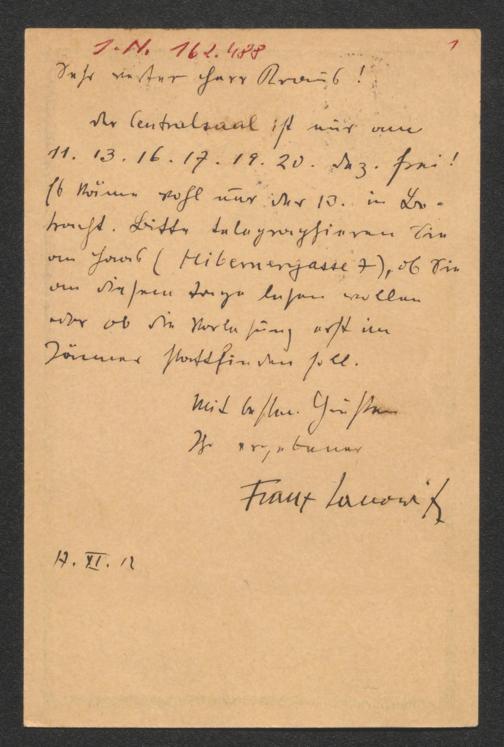 I.N. 162.488
1
Sehr werter Herr Kraus!
der Centralsaal ist nur am
11. 13. 16. 17. 19. 20. Dez. frei!
Es käme wohl nur der 13. in Be-
tracht. Bitte telegraphieren Sie
an Haas (Hibernergasse 7), ob Sie
an diesem Tage lesen wollen
oder ob die Vorlesung erst im
Jänner stattfinden soll.
Mit besten Grüßen
Ihr ergebener
Franz Janowitz
17. XI. 12